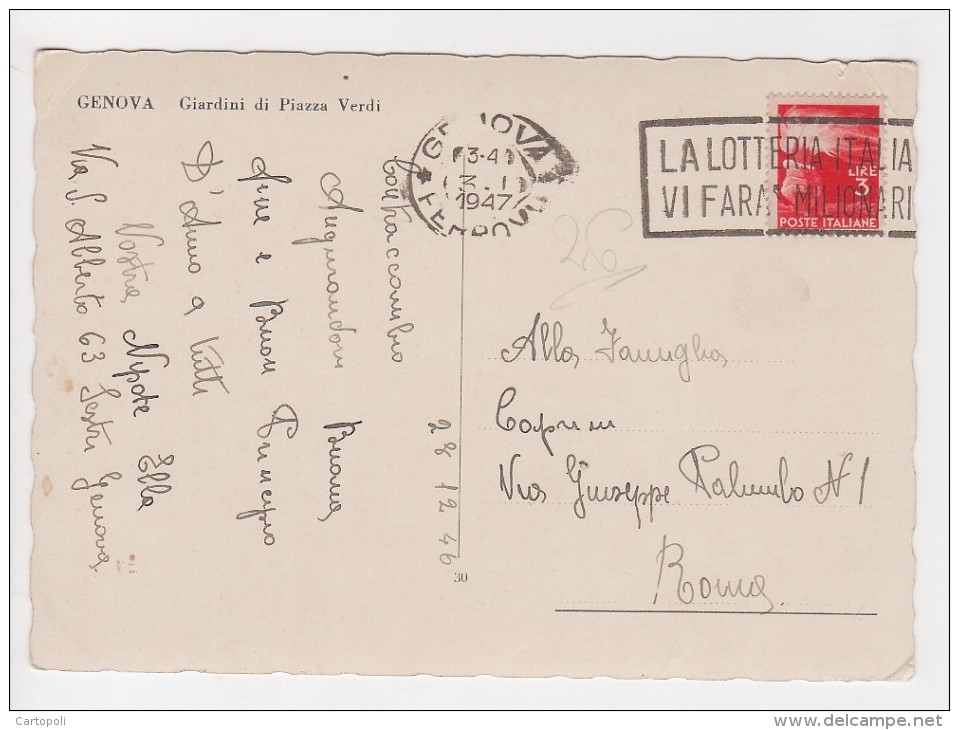 GENOVA Giardini di Piazza Verdi
GENOVA
13-4
3. 1
1947
FERROVIA
LA LOTTERIA ITALIA
VI FARA' MILIONARI
LIRE
3
POSTE ITALIANE
28 12 46
Contraccambio
Augurandovi Buona
fine e Buon Principio
D'Anno a tutti
Vostra Nipote Ella
Via S. Alberto 63 Sestri Genova
256
Alla Famiglia
Caprini
Via Giuseppe Palumbo N 1
Roma
30
Cartopoli
delcampe.net